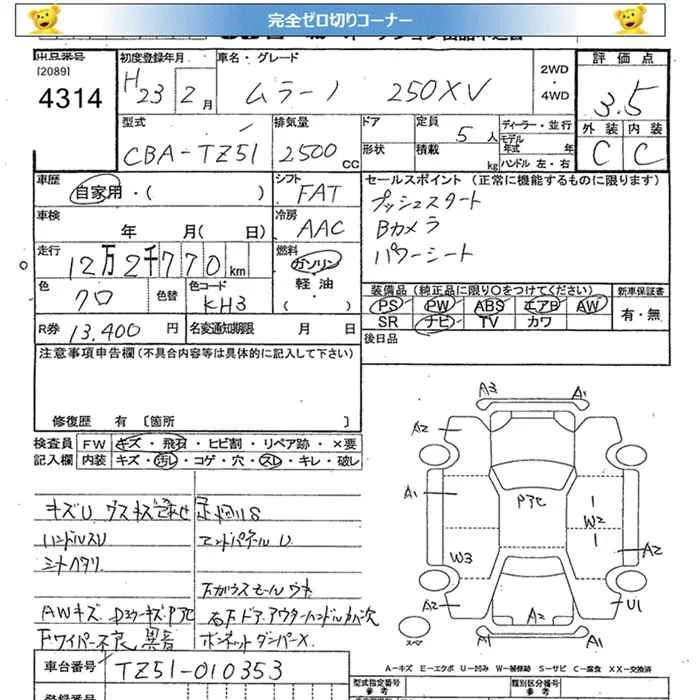 完全ゼロ切りコーナー
出品番号 初度登録年月 車名・グレード 2WD・4WD 評価点
[2089]
4314 H23 2月 ムラーノ 250XV 3.5
型式 排気量 ドア 定員 5人 ディーラー・並行 外装 内装
CBA-TZ51 2500CC 形状 積載 kg モデル年式 年 C C
ハンドル 左・右
車歴 自家用・( ) シフト FAT セールスポイント (正常に機能するものに限ります)
プッシュスタート
車検 年 月( 日) 冷房 AAC Bカメラ
パワーシート
走行 12万2千770km 燃料 ガソリン
軽油
( )
色 クロ 色替 色コード KH3 装備品 (純正品に限り○をつけてください) 新車保証書
PS PW ABS エアB AW 有・無
SR ナビ TV カワ
R券 13,400円 名変通知期限 月 日 後日品
注意事項申告欄(不具合内容等は具体的に記入して下さい)
修復歴 有 〔箇所 〕
検査員 FW キズ・飛石・ヒビ割・リペア跡・×要
記入欄 内装 キズ・汚レ・コゲ・穴・スレ・キレ・破レ
ハンドルスリ エンドパネルU
シートヘタリ
下ガラスモールウキ
AWキズ
右下ドアアウターハンドルカバー欠
下ワイパー不良 異音 ボンネットダンパーX
A3 A1
A2
A1 PアC W2
W3 A2
A2 A2 U1
スペア A1 A1
A-キズ E-エクボ U-凹み W-補修跡 S-サビ C-腐食 XX-交換済
車台番号 TZ51-010353
型式指定番号 参考 類別区分番号 参考
登録番号